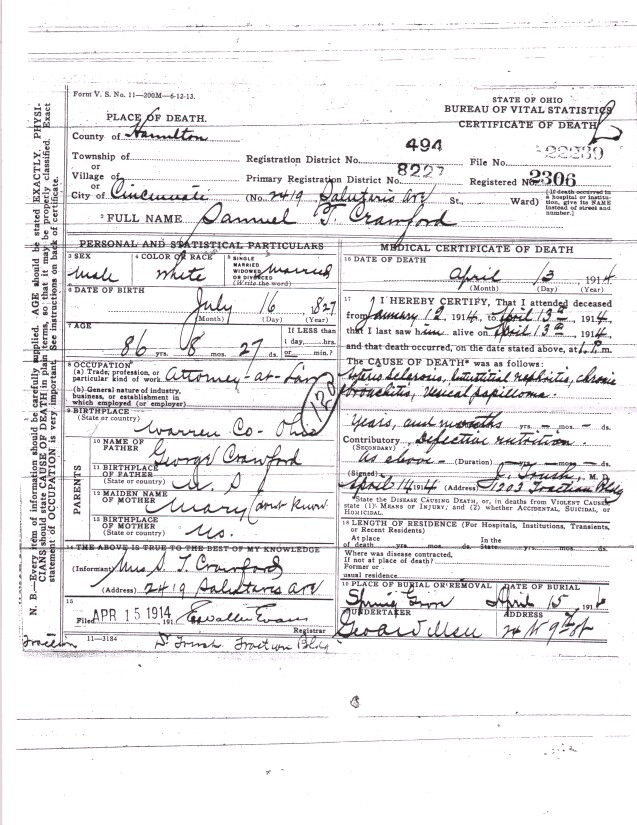 Form V. S. No. 11—200M—6-12-13.
STATE OF OHIO
BUREAU OF VITAL STATISTICS
CERTIFICATE OF DEATH
PLACE OF DEATH.
County of Hamilton
Township of
or
Village of
or
City of Cincinnati
Registration District No. 494 File No. 22239
Primary Registration District No. 8227 Registered No. 2306
(No. 2419 Saluteris av St., Ward)
(If death occurred in a hospital or institution, give its NAME instead of street and number.)
2 FULL NAME Samuel T. Crawford
PERSONAL AND STATISTICAL PARTICULARS
3 SEX
Male
4 COLOR OR RACE
White
5 SINGLE MARRIED WIDOWED OR DIVORCED (Write the word)
Married
6 DATE OF BIRTH
July 16 1827
(Month) (Day) (Year)
7 AGE
86 yrs. 8 mos. 27 ds.
If LESS than 1 day, hrs. or min.?
8 OCCUPATION
(a) Trade, profession, or particular kind of work Attorney-at-Law
(b) General nature of industry, business, or establishment in which employed (or employer)
120
9 BIRTHPLACE
(State or country)
Warren Co- Ohio
PARENTS
10 NAME OF FATHER
George Crawford
11 BIRTHPLACE OF FATHER
(State or country)
U. S
12 MAIDEN NAME OF MOTHER
Mary dont know
13 BIRTHPLACE OF MOTHER
(State or country)
14 THE ABOVE IS TRUE TO THE BEST OF MY KNOWLEDGE
(Informant) Mrs S. T. Crawford
(Address) 2419 Saluteris av
15
Filed APR 15 1914 191
Registrar
11—3184
MEDICAL CERTIFICATE OF DEATH
16 DATE OF DEATH
April 13 1914
(Month) (Day) (Year)
17 I HEREBY CERTIFY, That I attended deceased
from January 12, 1914, to April 13th, 1914,
that I last saw him alive on April 13th, 1914,
and that death occurred, on the date stated above, at 1 P. m.
The CAUSE OF DEATH* was as follows:
sclerosis, Interstitial nephritis, chronic
bronchitis, vesical papilloma.
Years, and months yrs. — mos. — ds.
Contributory Defective nutrition.
(SECONDARY)
As above — (Duration) yrs. — mos. — ds.
(Signed) M. D.
April 14 1914 (Address) 1203 Traction Bldg
*State the DISEASE CAUSING DEATH, or, in deaths from VIOLENT CAUSES, state (1) MEANS OF INJURY; and (2) whether ACCIDENTAL, SUICIDAL, or HOMICIDAL.
18 LENGTH OF RESIDENCE (For Hospitals, Institutions, Transients, or Recent Residents)
At place of death yrs. mos. ds. In the State yrs. mos. ds.
Where was disease contracted,
if not at place of death?
Former or
usual residence
19 PLACE OF BURIAL OR REMOVAL
Spring Grove
DATE OF BURIAL
April 15 1914
UNDERTAKER
ADDRESS
Traction
Dr Traction Bldg
N. B.—Every item of information should be carefully supplied. AGE should be stated EXACTLY. PHYSI-
CIANS should state CAUSE OF DEATH in plain terms, so that it may be properly classified. Exact
statement of OCCUPATION is very important. See instructions on back of certificate.